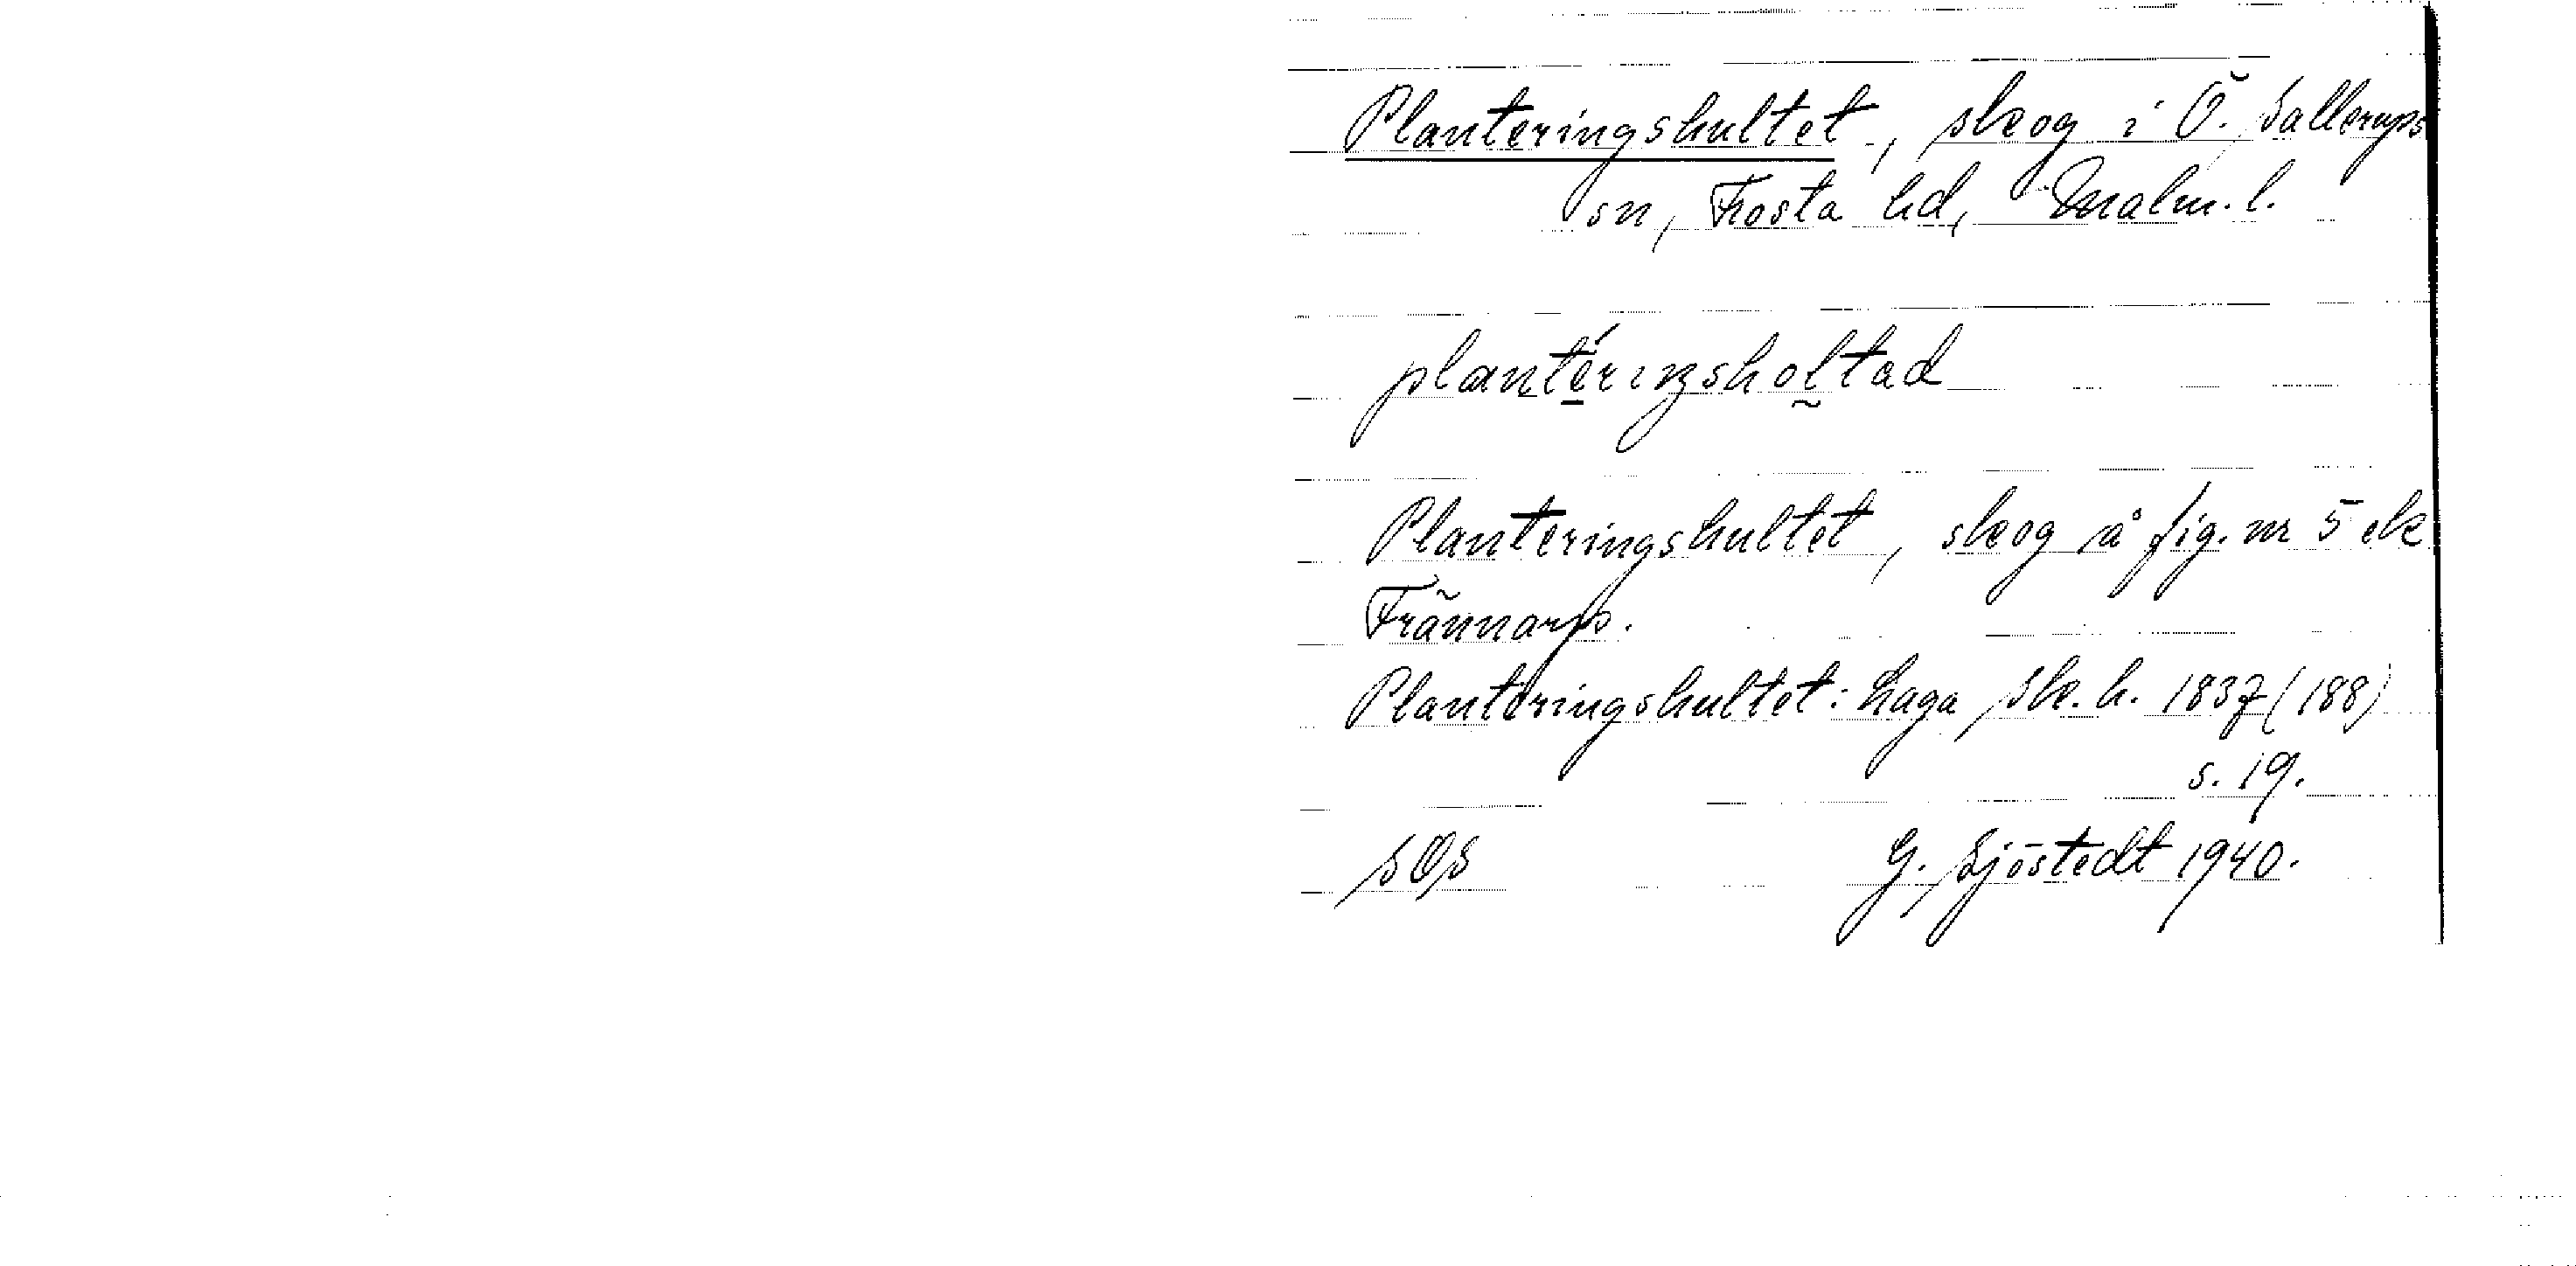 Planteringshultet, skog i Ö. Sallerups
sn, Frosta hd, Malm. l.
plantériŋsholtad
Planteringshultet, skog å fig. nr 5 ek
Frännarp.
Planteringshultet: Laga sk. h. 1837 (188)
s. 19.
SOS G. Sjöstedt 1940.